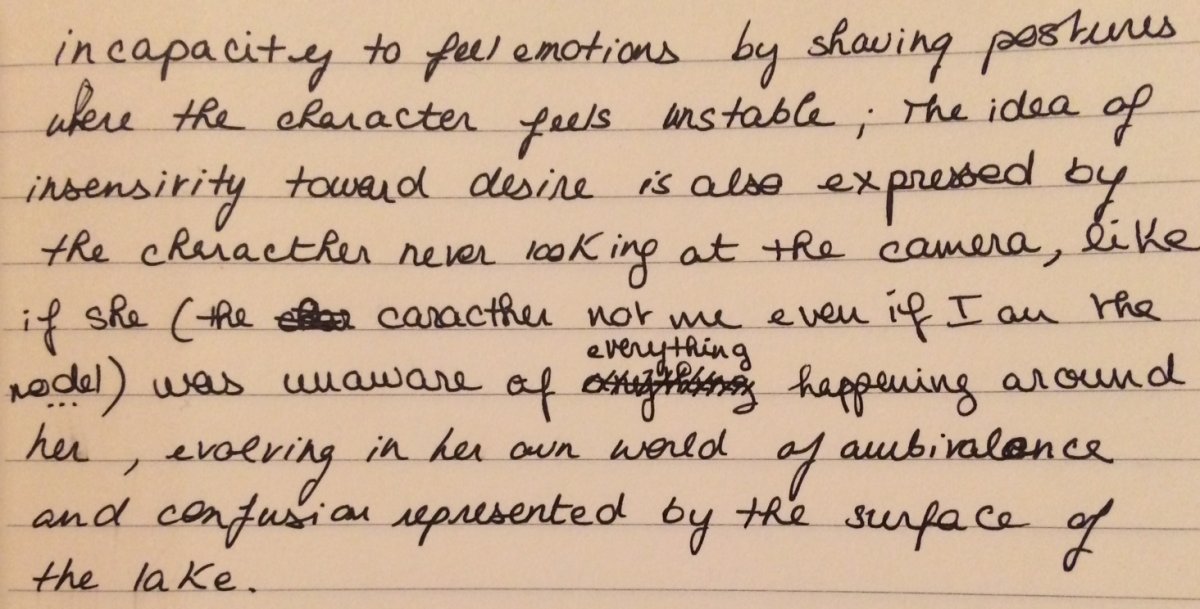 incapacity to feel emotions by shaving postures
where the character feels unstable ; The idea of
insensirity toward desire is also expressed by
the characther never looking at the camera, like
if she (the caracther not me even if I am the
model) was unaware of everything happening around
her , evolving in her own world of ambivalence
and confusion represented by the surface of
the lake.